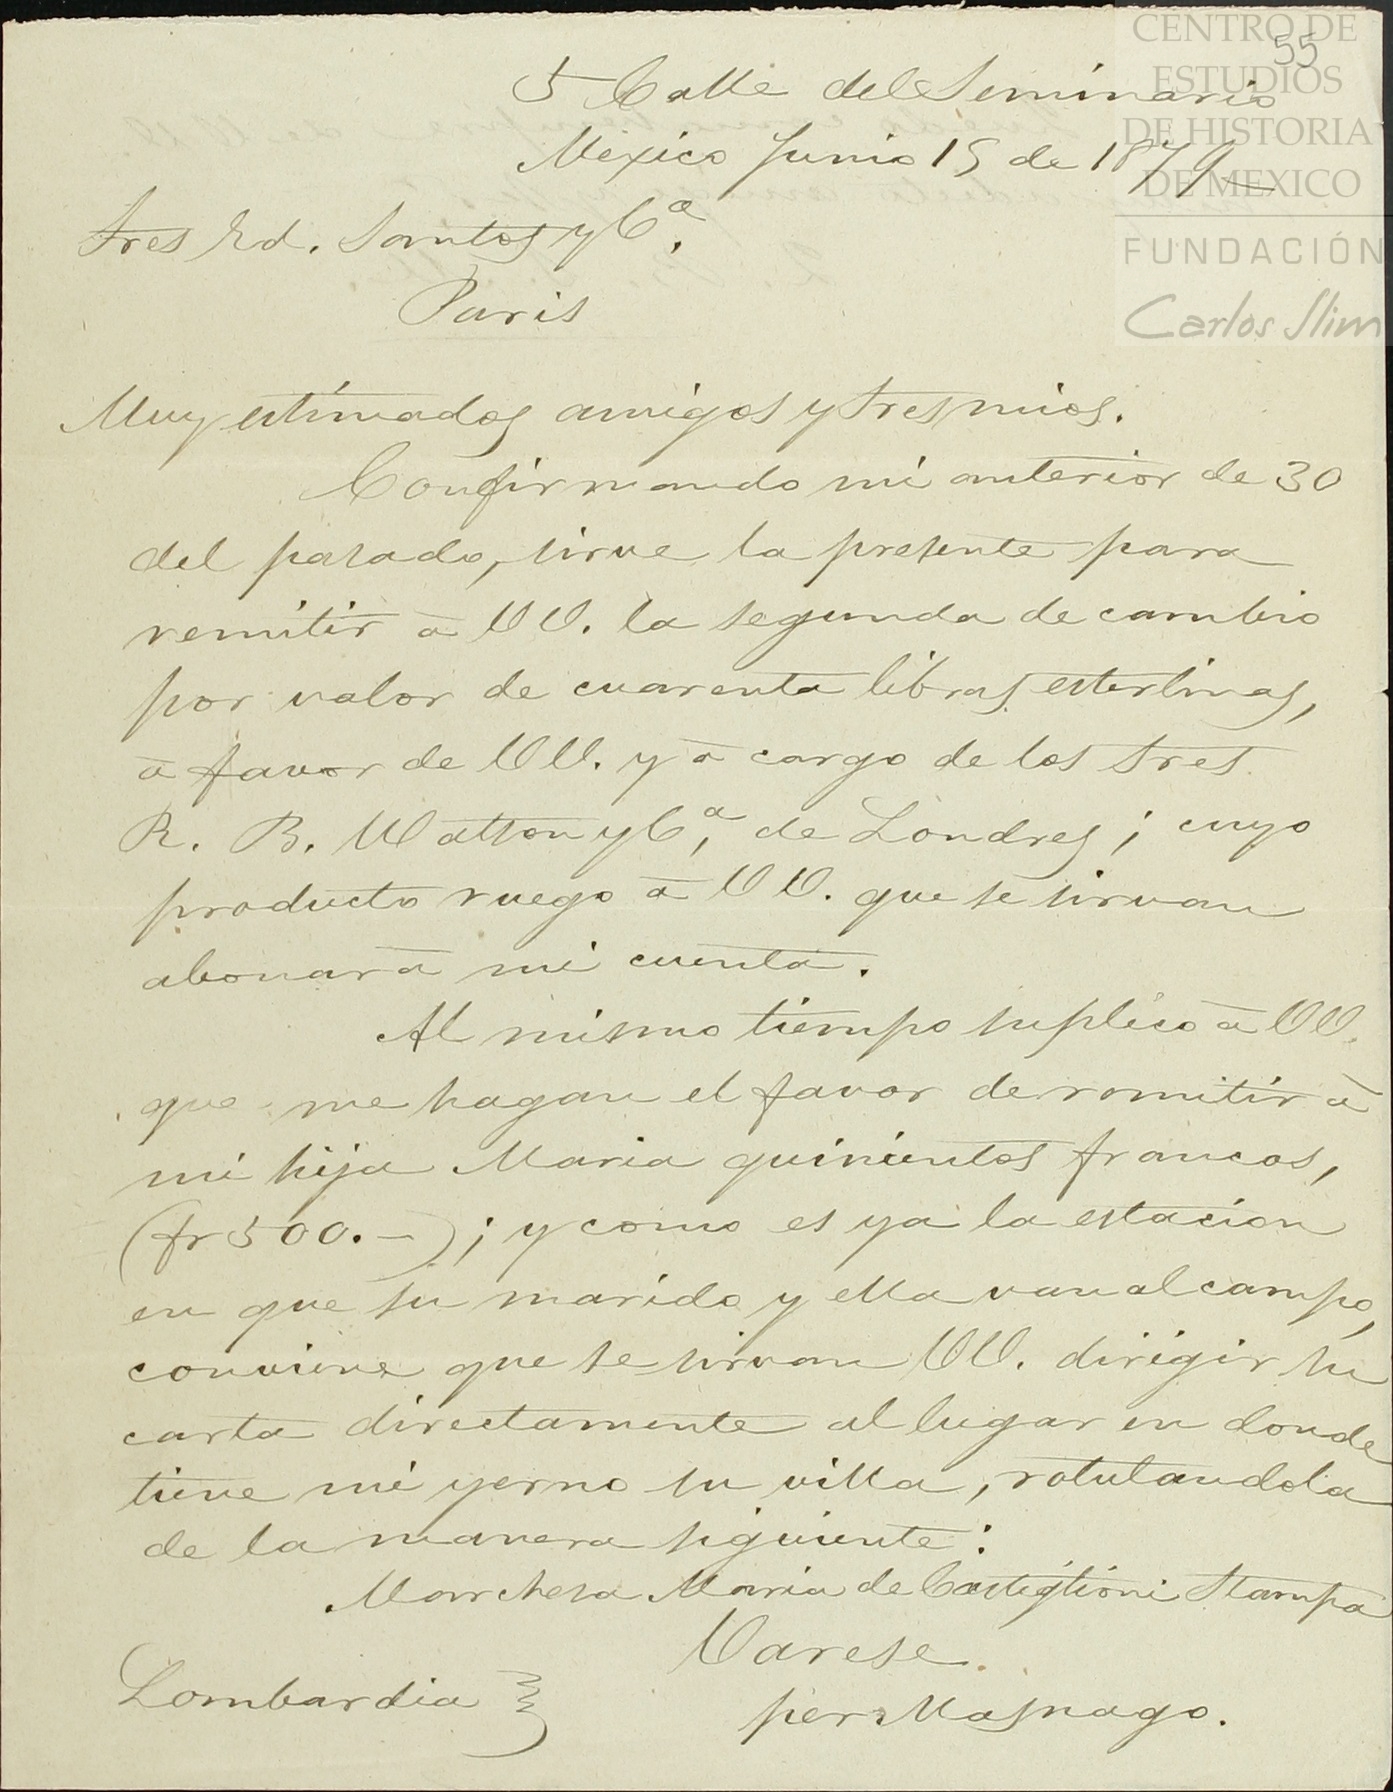 CENTRO DE
ESTUDIOS
DE HISTORIA
DE MEXICO
FUNDACIÓN
Carlos Slim
55
5 Calle del Seminario
México Junio 15 de 1879
Sres Ed. Santos y Cª.
Paris
Muy estimados amigos y Sres mios.
Confirmando mi anterior de 30
del pasado, sirve la presente para
remitir á VV. la segunda de cambio
por valor de cuarenta libras esterlinas,
á favor de VV. y á cargo de los Sres
R. B. Watson y Cª, de Londres; cuyo
producto ruego á VV. que se sirvan
abonar á mi cuenta.
Al mismo tiempo suplico á VV.
que me hagan el favor de remitir á
mi hija Maria quinientos francos,
(fr 500.-); y como es ya la estacion
en que su marido y ella van al campo,
conviene que se sirvan VV. dirigir su
carta directamente al lugar en donde
tiene mi yerno su villa, rotulandola
de la manera siguiente:
Marchesa Maria de Castiglioni Stampa
Varese.
Lombardia
per Masnago.